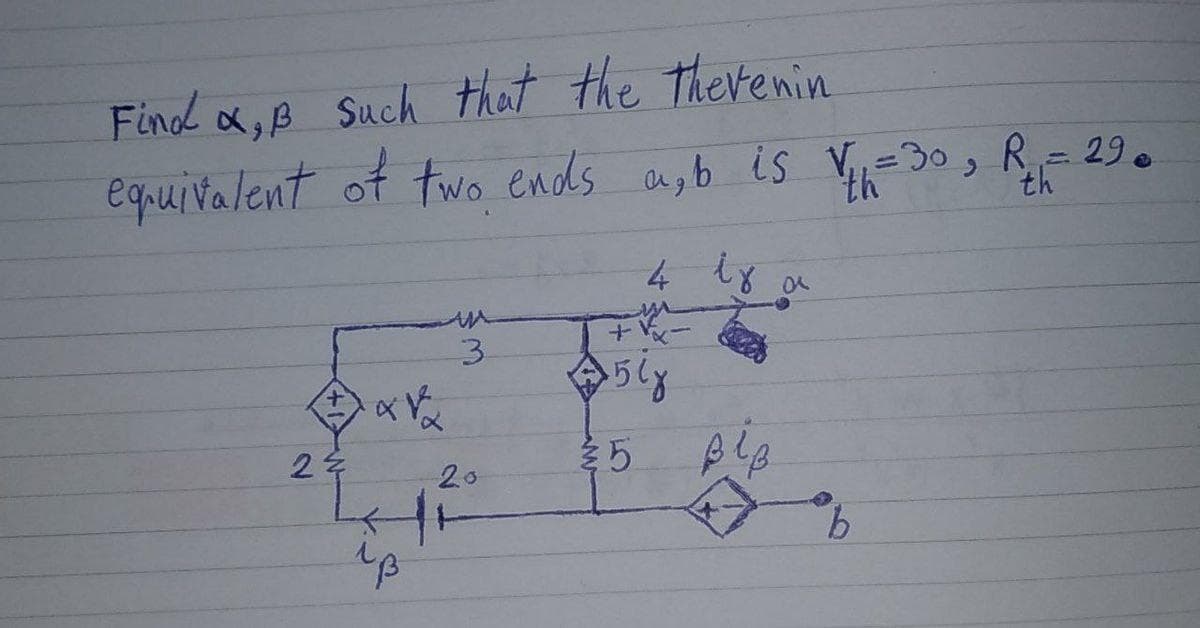 Find α, β such that the thevenin
equivalent of two ends a,b is Vth=30, Rth=29.
4 iγ a
3 + Vα -
- + 5iγ
+ - αVα
2 20 5 βiβ
+ -
b
iβ